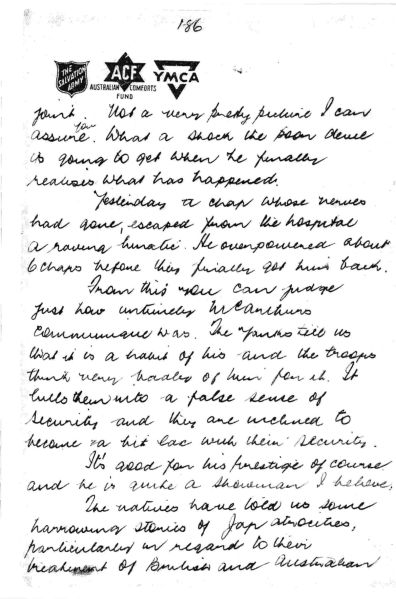 186
THE SALVATION ARMY
ACF
AUSTRALIAN COMFORTS FUND
YMCA
joint. Not a very pretty picture I can
assure you. What a shock the poor devil
is going to get when he finally
realises what has happened.
Yesterday a chap whose nerves
had gone, escaped from the hospital
a raving lunatic. He overpowered about
6 chaps before they finally got him back.
From this you can judge
just how untimely McCarthurs
communique was. The Yanks tell us
that it is a habit of his and the troops
think very badly of him for it. It
lulls them into a false sense of
security and they are inclined to
become a bit lac with their security.
It's good for his prestige of course
and he is quite a showman I believe.
The natives have told us some
harrowing stories of Jap atrocities,
particularly in regard to their
treatment of British and Australian